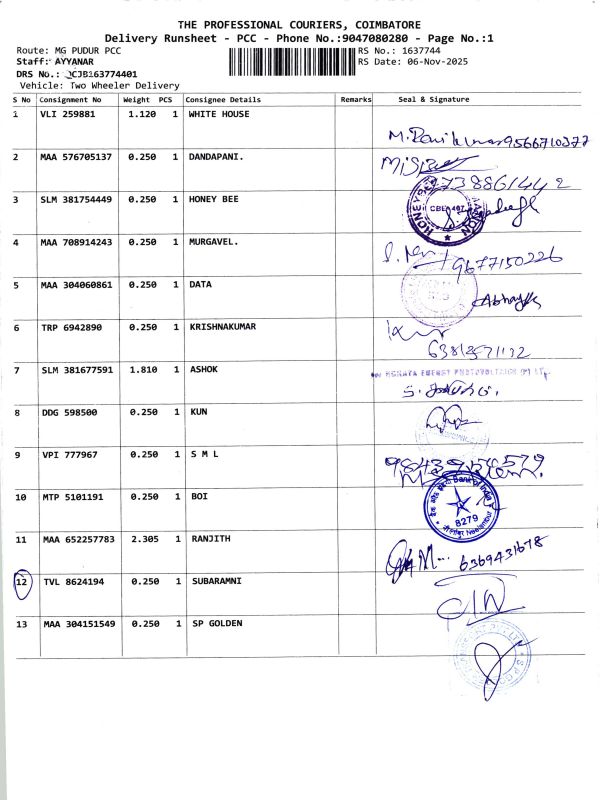 THE PROFESSIONAL COURIERS, COIMBATORE
Delivery Runsheet - PCC - Phone No.:9047080280 - Page No.:1
Route: MG PUDUR PCC RS No.: 1637744
Staff: AYYANAR RS Date: 06-Nov-2025
DRS No.: CJB163774401
Vehicle: Two Wheeler Delivery
S No Consignment No Weight PCS Consignee Details Remarks Seal & Signature
1 VLI 259881 1.120 1 WHITE HOUSE
9566710377
2 MAA 576705137 0.250 1 DANDAPANI.
738861442
3 SLM 381754449 0.250 1 HONEY BEE
CBE-407
4 MAA 708914243 0.250 1 MURGAVEL.
9677150226
5 MAA 304060861 0.250 1 DATA
6 TRP 6942890 0.250 1 KRISHNAKUMAR
7 SLM 381677591 1.810 1 ASHOK
ENERGY PHOTOVOLTAICS
8 DDG 598500 0.250 1 KUN
9 VPI 777967 0.250 1 S M L
10 MTP 5101191 0.250 1 BOI
Bank of India
8279
Neelambur
11 MAA 652257783 2.305 1 RANJITH
6369431678
12 TVL 8624194 0.250 1 SUBARAMNI
13 MAA 304151549 0.250 1 SP GOLDEN